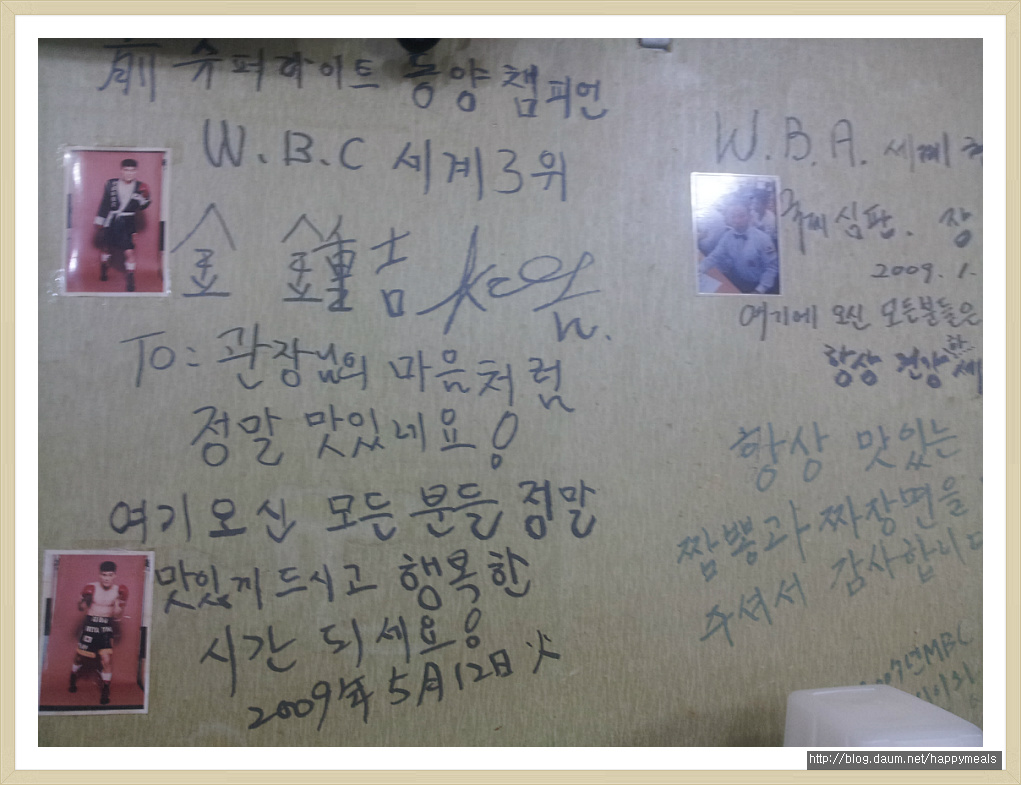 前 슈퍼라이트 동양챔피언
W.B.C 세계3위
金 鐘 吉
To: 관장님의 마음처럼
정말 맛있네요!
여기 오신 모든 분들 정말
맛있게 드시고 행복한
시간 되세요!
2009年 5月12日 火
W.B.A. 세계
국제심판. 장
2009. 1.
여기에 오신 모든분들은
항상 건강한
항상 맛있는
짬뽕과 짜장면을
주셔서 감사합니다
MBC
http://blog.daum.net/happymeals